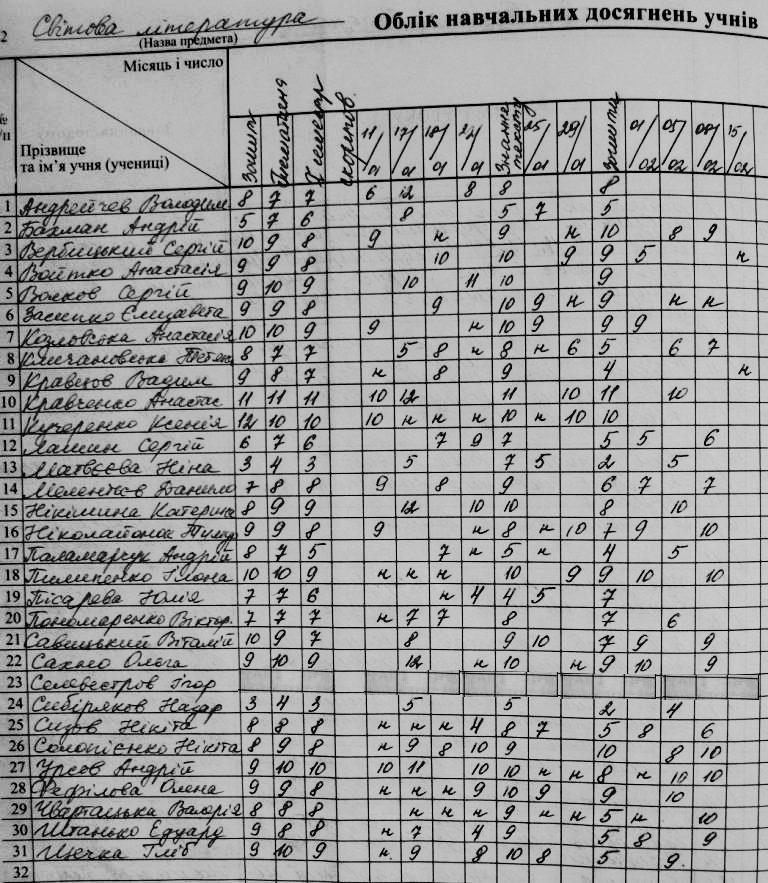 2 Світова література Облік навчальних досягнень учнів
(Назва предмета)
Місяць і число
Прізвище
та ім'я учня (учениці)
Зошит Тематична І семестр Скоригов. 11/01 17/01 18/01 24/01 Знання тексту 25/01 29/01 Зошити 01/02 05/02 08/02 15/02
1 Андрейчев Володим 8 7 7 6 12 8 8 8
2 Бахман Андрій 5 7 6 8 5 7 5
3 Вербицький Сергій 10 9 8 9 н 9 н 10 8 9
4 Войтко Анастасія 9 9 8 10 10 9 9 5 н
5 Волков Сергій 9 10 9 10 11 10 9
6 Засипко Єлизавета 9 9 8 9 10 9 н 9 н н
7 Козловська Анастасія 10 10 9 9 н 10 9 9 9
8 Климчановська Тетян 8 7 7 5 8 н 8 н 6 5 6 7
9 Кравцов Вадим 9 8 7 н 8 9 4 н
10 Кравченко Анастас 11 11 11 10 12 11 10 11 10
11 Кучеренко Ксенія 12 10 10 10 н н н 10 н 10 10
12 Лашин Сергій 6 7 6 7 9 7 5 5 6
13 Матвєєва Ніна 3 4 3 5 7 5 2 5
14 Мелентєв Данило 7 8 8 9 8 9 6 7 7
15 Нікішина Катерина 8 9 9 12 10 10 8 10
16 Ніколайонок Тимур 9 9 8 9 н 8 н 10 7 9 10
17 Паламарчук Андрій 8 7 5 7 н 5 н 4 5
18 Пилипенко Ілона 10 10 9 н н н 10 9 9 10 10
19 Пісарєва Юлія 7 7 6 н 4 4 5 7
20 Пономаренко Віктор. 7 7 7 н 7 7 8 7 6
21 Савицький Віталій 10 9 7 8 9 10 7 9 9
22 Сахно Ольга 9 10 9 12 н 10 н 9 10 9
23 Селевестров Ігор
24 Сибіряков Назар 3 4 3 5 5 2 4
25 Сизов Нікіта 8 8 8 н н н 4 8 7 5 8 6
26 Соломієнко Нікіта 8 9 8 н 9 8 10 9 10 8 10
27 Урсов Андрій 9 10 10 10 11 10 10 н н 8 н 10 10
28 Фефілова Олена 9 9 8 н н н 9 10 9 9 10
29 Чвартацька Валерія 8 8 8 н н н 9 н н 5 н 10
30 Штанько Едуард 9 8 8 н 7 4 9 5 8 9
31 Щечка Гліб 9 10 9 н. 9 8 10 8 5 9.
32